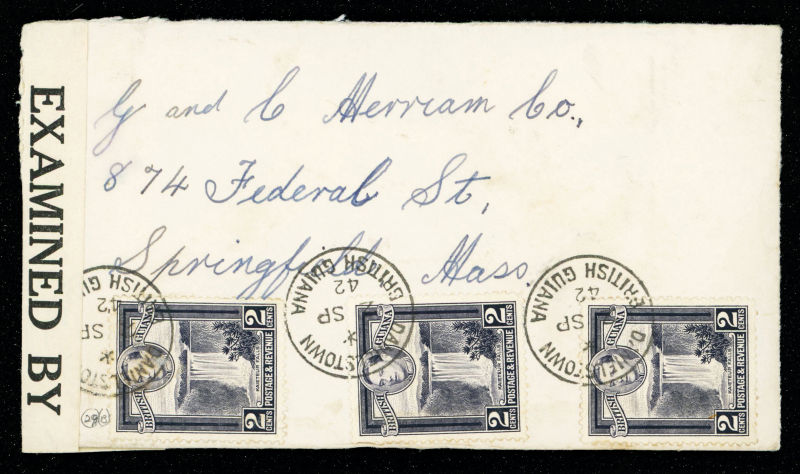 EXAMINED BY
G and C Merriam Co.,
874 Federal St,
Springfield Mass.
DANIELSTOWN
BRITISH GUIANA
*
SP
42
DANIELSTOWN
BRITISH GUIANA
*
SP
42
DANIELSTOWN
BRITISH GUIANA
*
SP
42
BRITISH GUIANA
KAIETEUR FALLS
POSTAGE & REVENUE
2 CENTS
2 CENTS
BRITISH GUIANA
KAIETEUR FALLS
POSTAGE & REVENUE
2 CENTS
2 CENTS
BRITISH GUIANA
KAIETEUR FALLS
POSTAGE & REVENUE
2 CENTS
2 CENTS